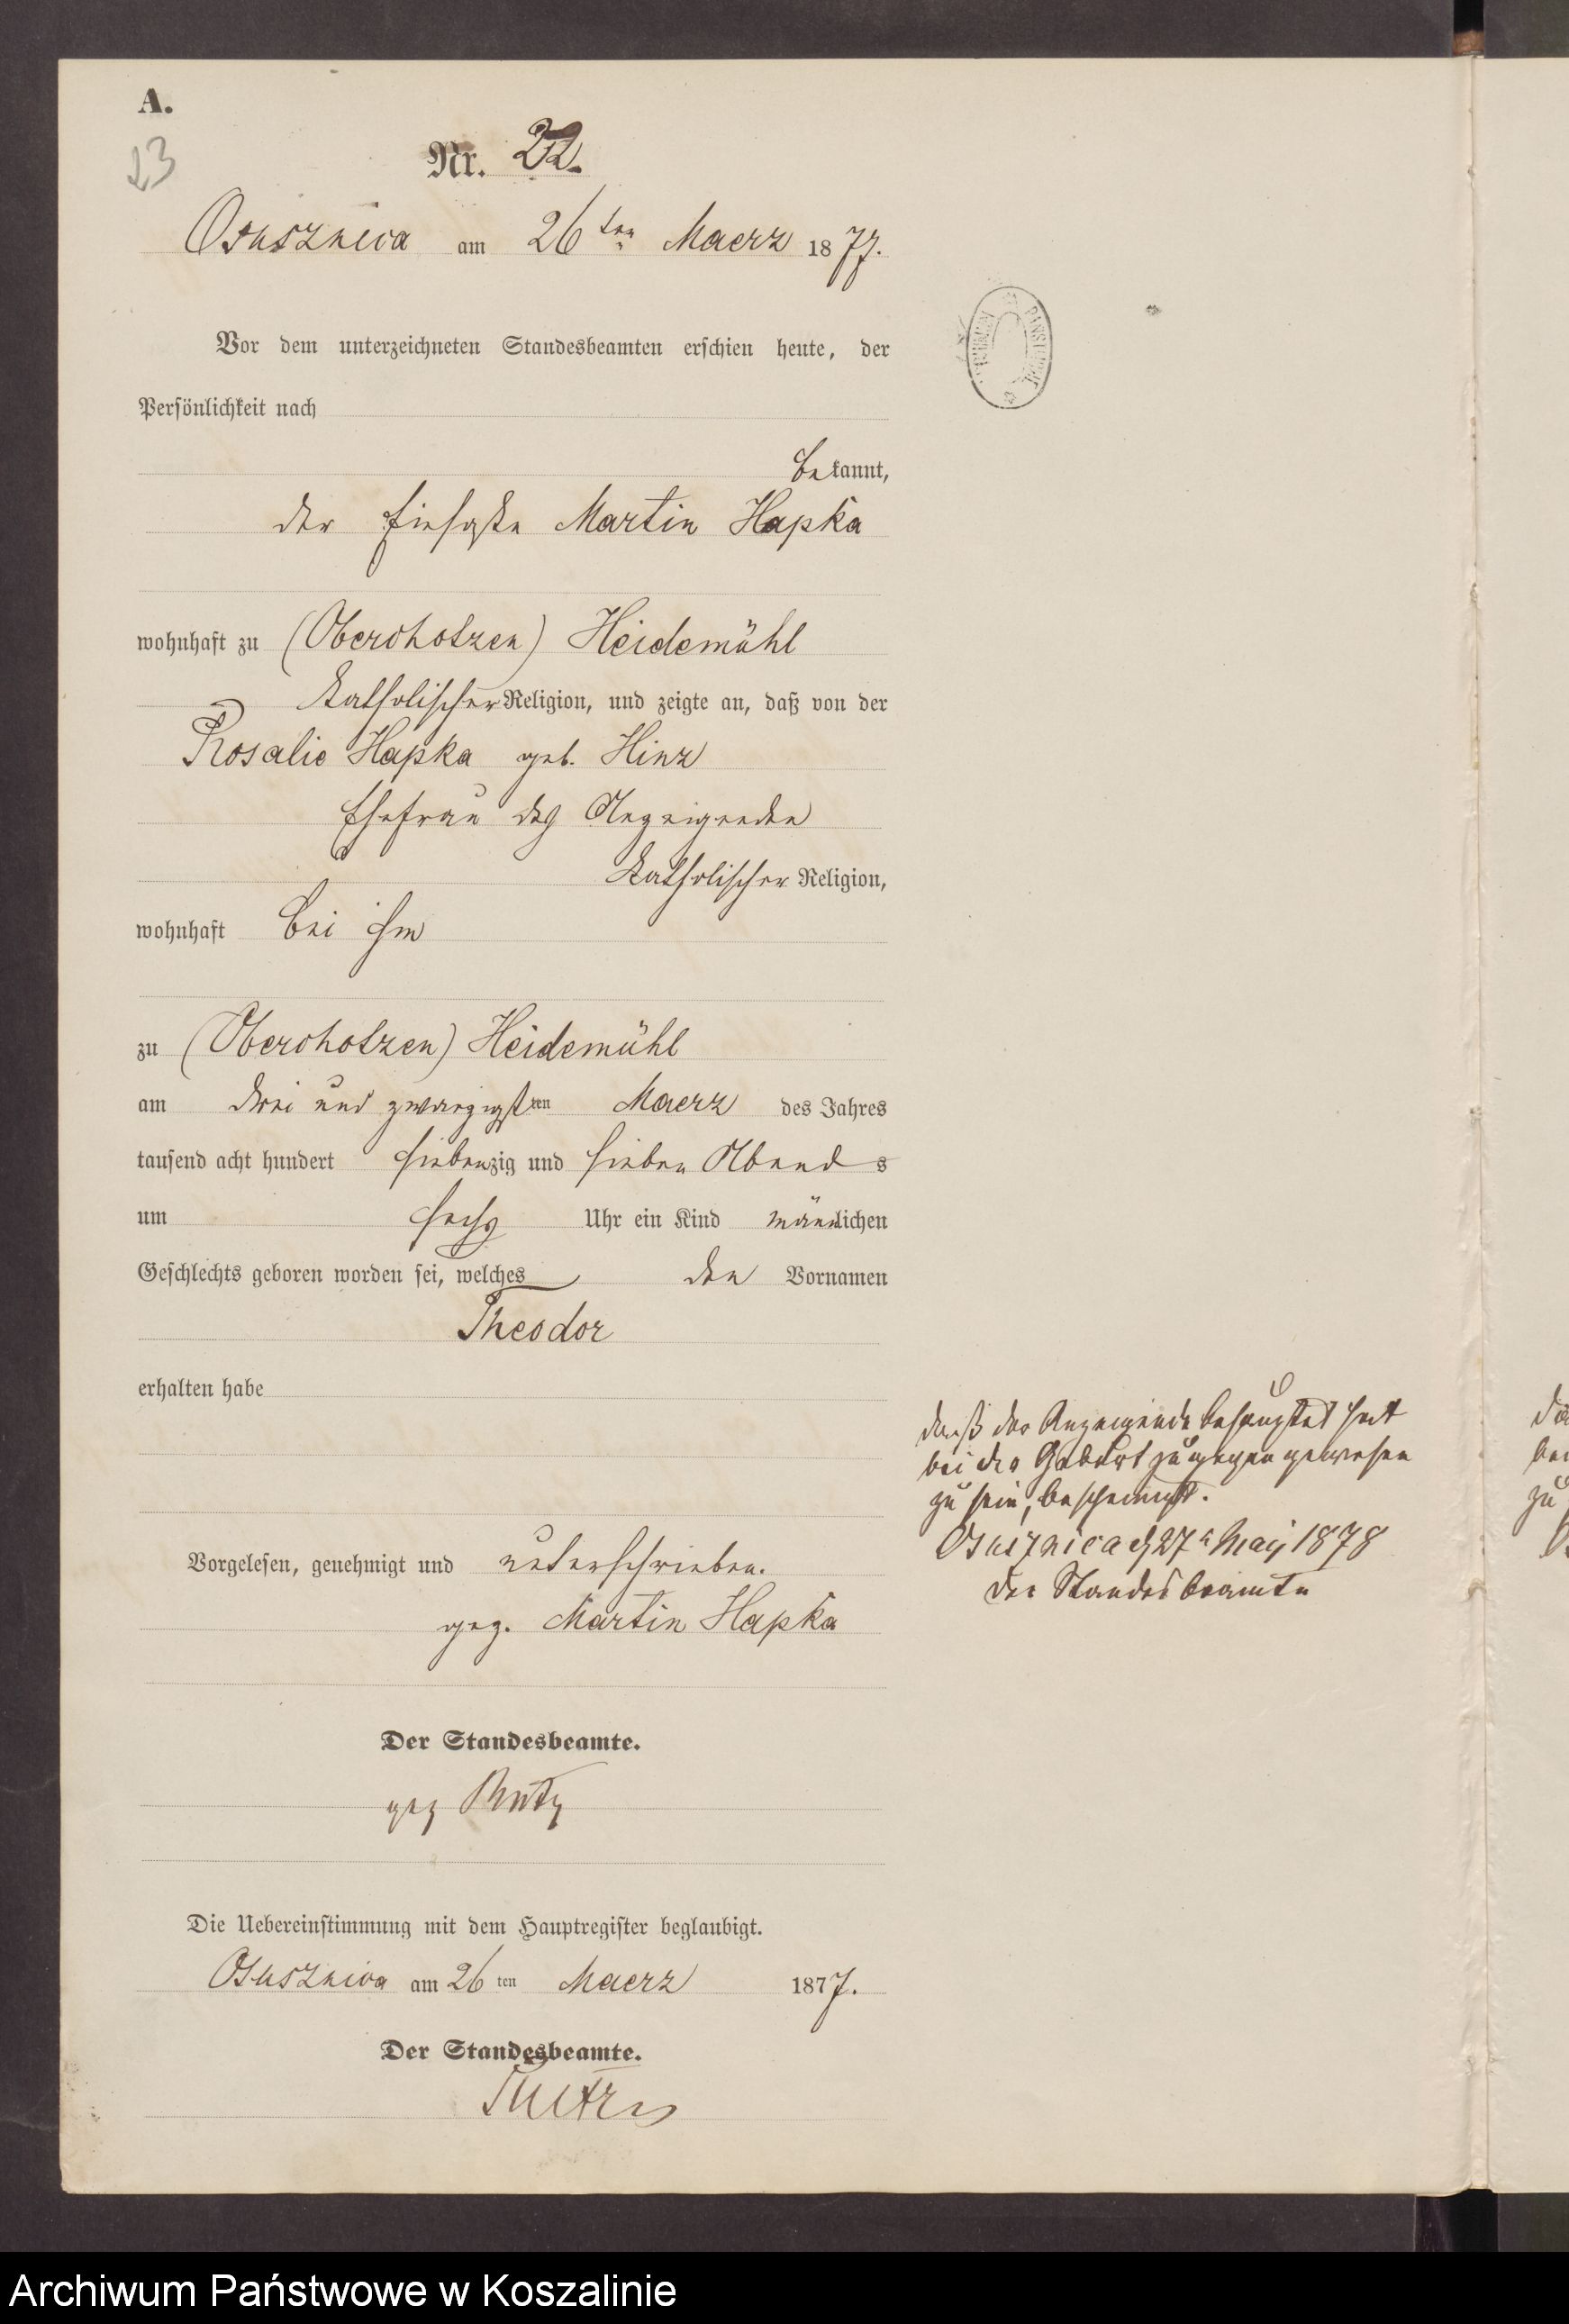 A.
23
Nr. 22.
Osusznica am 26ten Maerz 1877.
Vor dem unterzeichneten Standesbeamten erschien heute, der
Persönlichkeit nach
bekannt,
der Einsaße Martin Hapka
wohnhaft zu (Oberohotzen) Heidemühl
katholischer Religion, und zeigte an, daß von der
Rosalie Hapka geb. Hinz
Ehefrau des Anzeigenden
katholischer Religion,
wohnhaft bei ihm
zu (Oberohotzen) Heidemühl
am drei und zwanzigsten Maerz des Jahres
tausend acht hundert siebenzig und sieben Abends
um sechs Uhr ein Kind männlichen
Geschlechts geboren worden sei, welches den Vornamen
Theodor
erhalten habe
daß der Anzeigende behauptet hat
bei der Geburt zugegen gewesen
zu sein, bescheinigt.
Osusznica d 27n Maij 1878
Der Standesbeamte
Vorgelesen, genehmigt und unterschrieben.
gez. Martin Hapka
Der Standesbeamte.
gez
Die Uebereinstimmung mit dem Hauptregister beglaubigt.
Osusznica am 26ten Maerz 1877.
Der Standesbeamte.
Archiwum Państwowe w Koszalinie